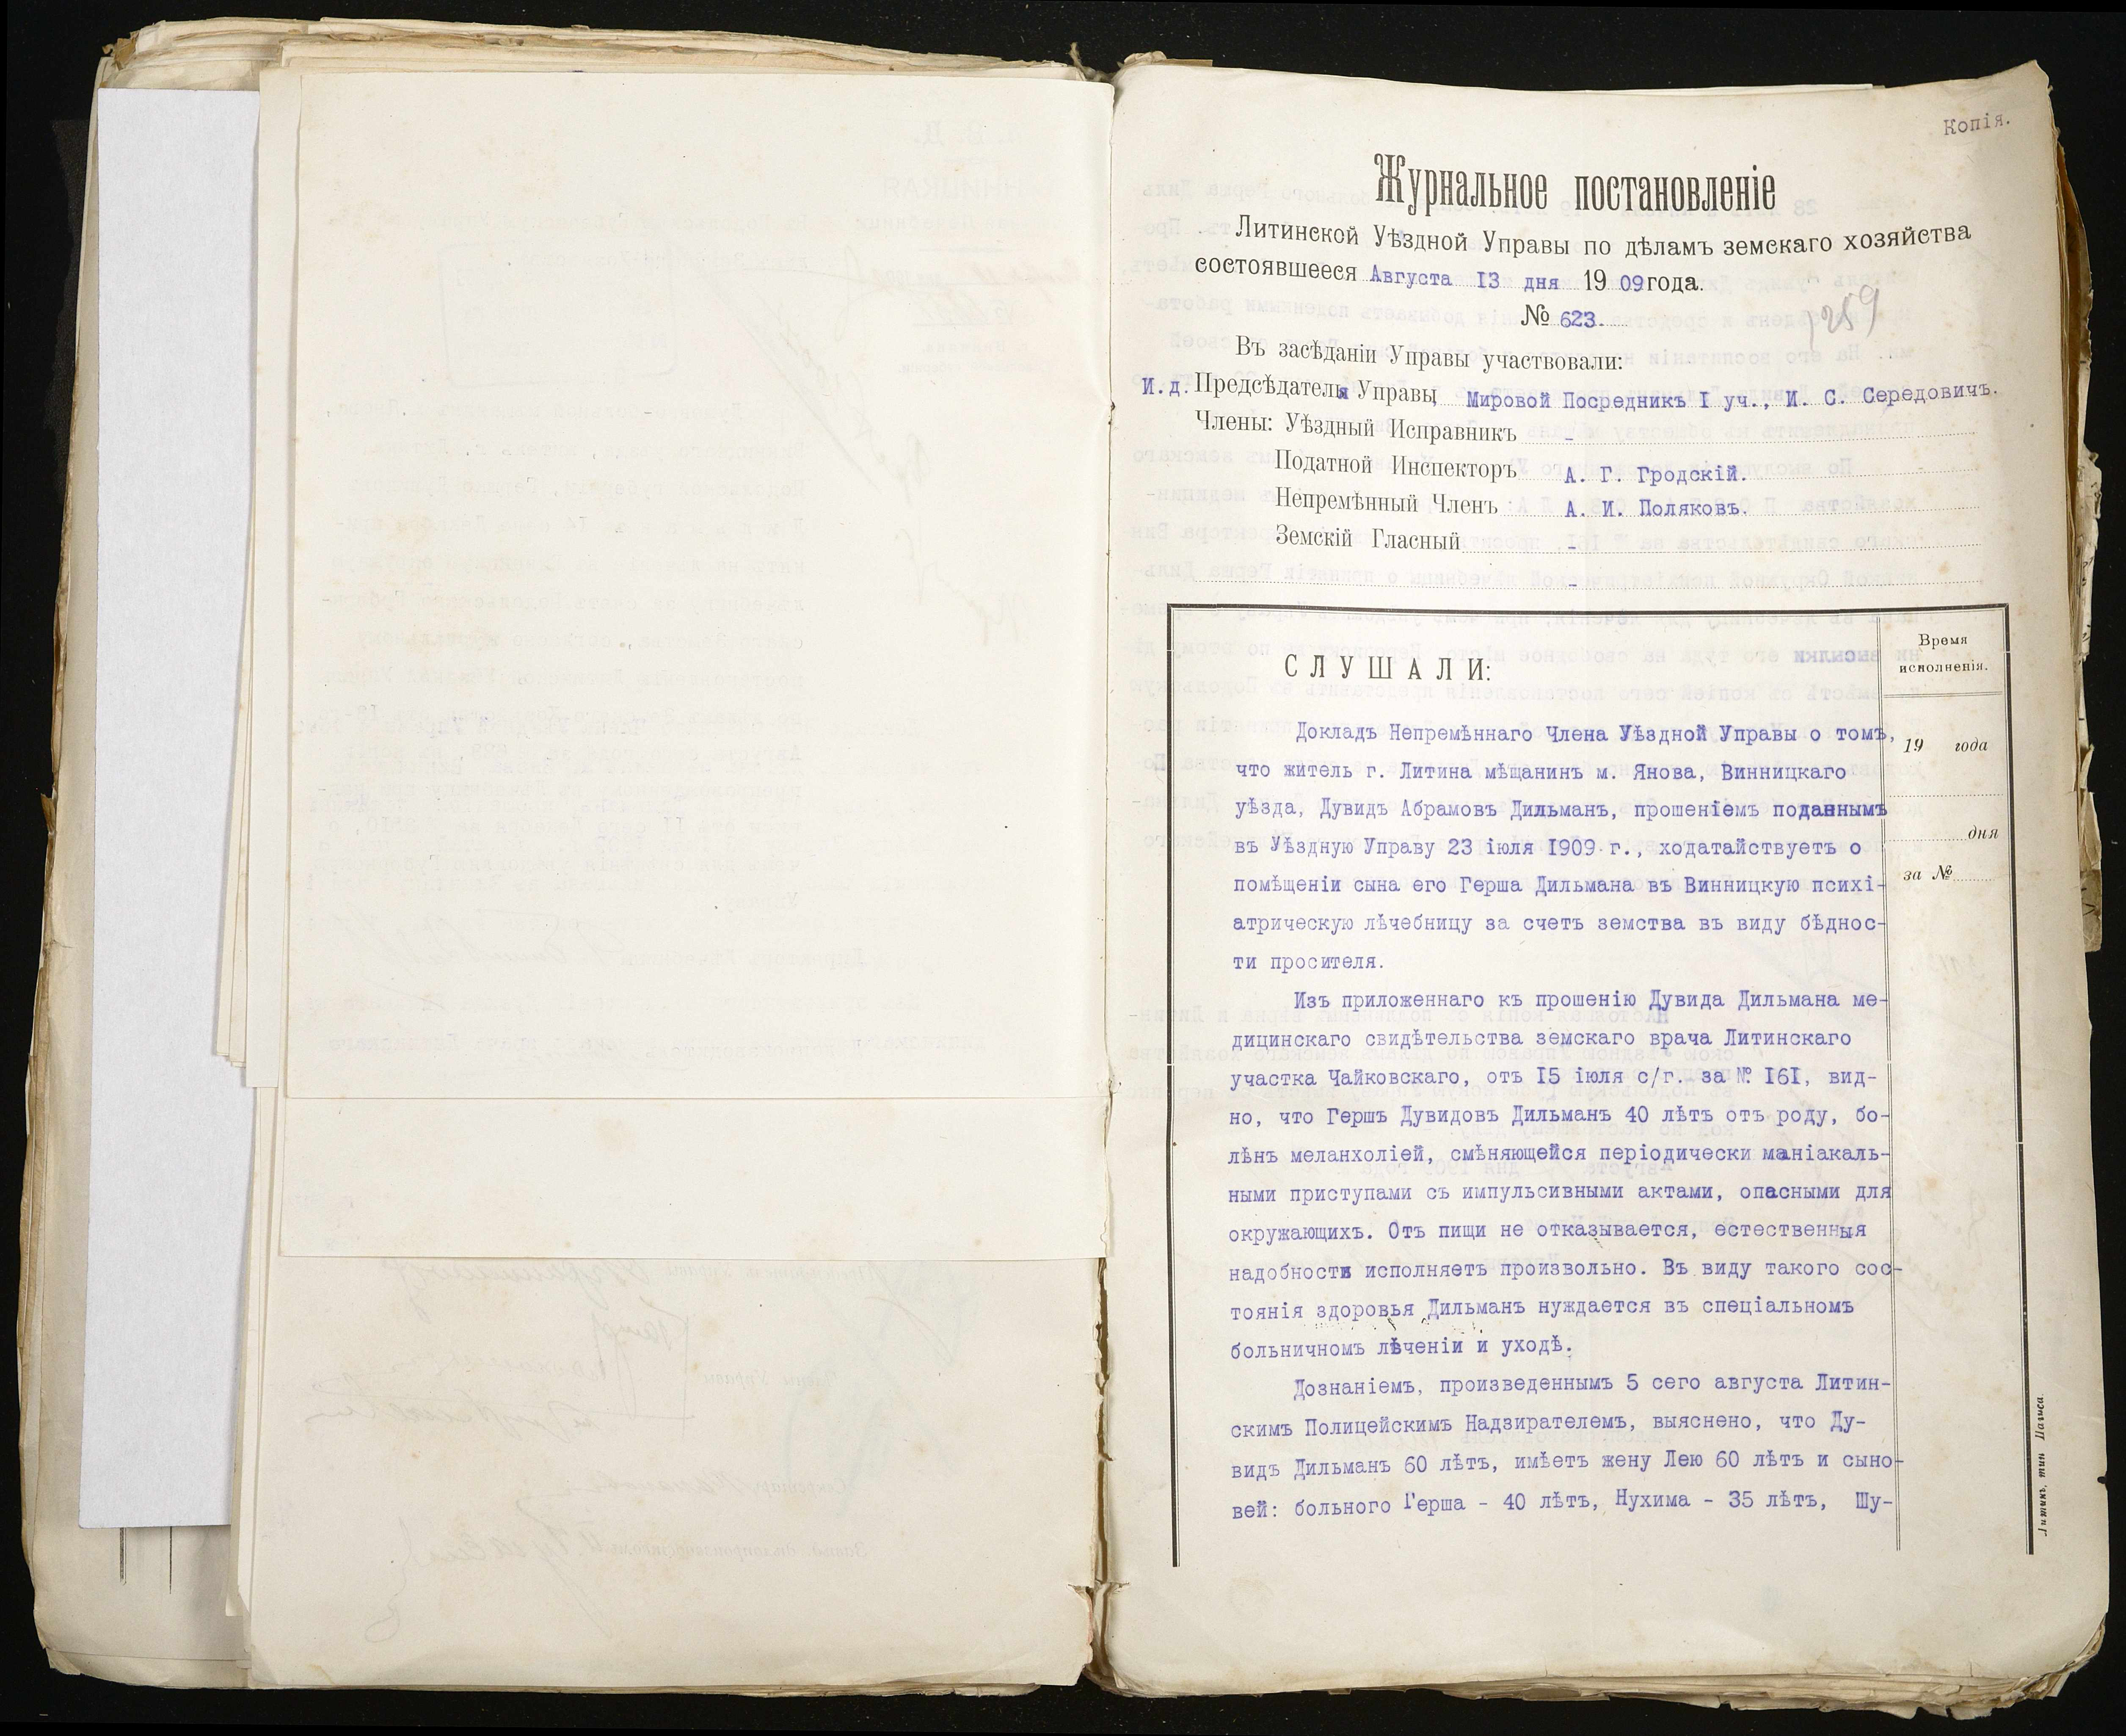 Копія.
Журнальное постановленіе
Литинской Уѣздной Управы по дѣламъ земскаго хозяйства
состоявшееся Августа 13 дня 1909 года.
№ 623.
259
Въ засѣданіи Управы участвовали:
И.д. Предсѣдателя Управы Мировой Посредникъ I уч., И. С. Середовичъ.
Члены: Уѣздный Исправникъ -
Податной Инспекторъ А. Г. Гродскій.
Непремѣнный Членъ А. И. Поляковъ.
Земскій Гласный -
-
СЛУШАЛИ:
Время
исполненія.
19 года
дня
за №
Докладъ Непремѣннаго Члена Уѣздной Управы о томъ,
что житель г. Литина мѣщанинъ м. Янова, Винницкаго
уѣзда, Дувидъ Абрамовъ Дильманъ, прошеніемъ поданнымъ
въ Уѣздную Управу 23 іюля 1909 г., ходатайствуетъ о
помѣщеніи сына его Герша Дильмана въ Винницкую психі-
атрическую лѣчебницу за счетъ земства въ виду бѣднос-
ти просителя.
Изъ приложеннаго къ прошенію Дувида Дильмана ме-
дицинскаго свидѣтельства земскаго врача Литинскаго
участка Чайковскаго, отъ 15 іюля с/г. за № 161, вид-
но, что Гершъ Дувидовъ Дильманъ 40 лѣтъ отъ роду, бо-
лѣнъ меланхоліей, смѣняющейся періодически маніакаль-
ными приступами съ импульсивными актами, опасными для
окружающихъ. Отъ пищи не отказывается, естественныя
надобности исполняетъ произвольно. Въ виду такого сос-
тоянія здоровья Дильманъ нуждается въ спеціальномъ
больничномъ лѣченіи и уходѣ.
Дознаніемъ, произведеннымъ 5 сего августа Литин-
скимъ Полицейскимъ Надзирателемъ, выяснено, что Ду-
видъ Дильманъ 60 лѣтъ, имѣетъ жену Лею 60 лѣтъ и сыно-
вей: больного Герша - 40 лѣтъ, Нухима - 35 лѣтъ, Шу-